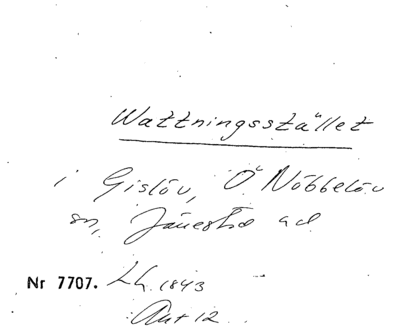 Wattningsstället
i Gislöv, Ö Nöbbelöv
sn, Järrestad
Nr 7707. Lh. 1843
Akt 12